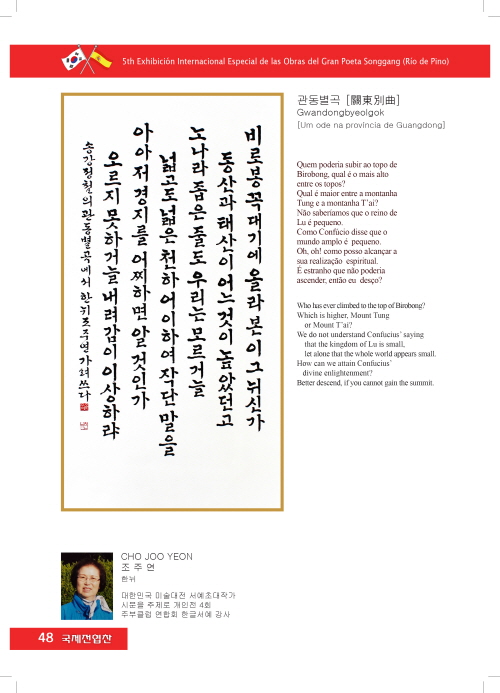 5th Exhibición Internacional Especial de las Obras del Gran Poeta Songgang (Río de Pino)
관동별곡 [關東別曲]
Gwandongbyeolgok
[Um ode na província de Guangdong]
비로봉 꼭대기에 올라 본 이 그 뉘신가
동산과 태산이 어느 것이 높았던고
노나라 좁은 줄도 우리는 모르거늘
넓고도 넓은 천하 어이하여 작단 말을
아아 저 경지를 어찌하면 알 것인가
오르지 못하거늘 내려감이 이상하랴
송강 정철의 관동별곡에서 한뉘 조주연 가려쓰다
Quem poderia subir ao topo de
Birobong, qual é o mais alto
entre os topos?
Qual é maior entre a montanha
Tung e a montanha T'ai?
Não saberíamos que o reino de
Lu é pequeno.
Como Confúcio disse que o
mundo amplo é pequeno.
Oh, oh! como posso alcançar a
sua realização espiritual.
É estranho que não poderia
ascender, então eu desço?
Who has ever climbed to the top of Birobong?
Which is higher, Mount Tung
or Mount T'ai?
We do not understand Confucius' saying
that the kingdom of Lu is small,
let alone that the whole world appears small.
How can we attain Confucius'
divine enlightenment?
Better descend, if you cannot gain the summit.
CHO JOO YEON
조 주 연
한뉘
대한민국 미술대전 서예초대작가
시문을 주제로 개인전 4회
주부클럽 연합회 한글서예 강사
48 국제전업산